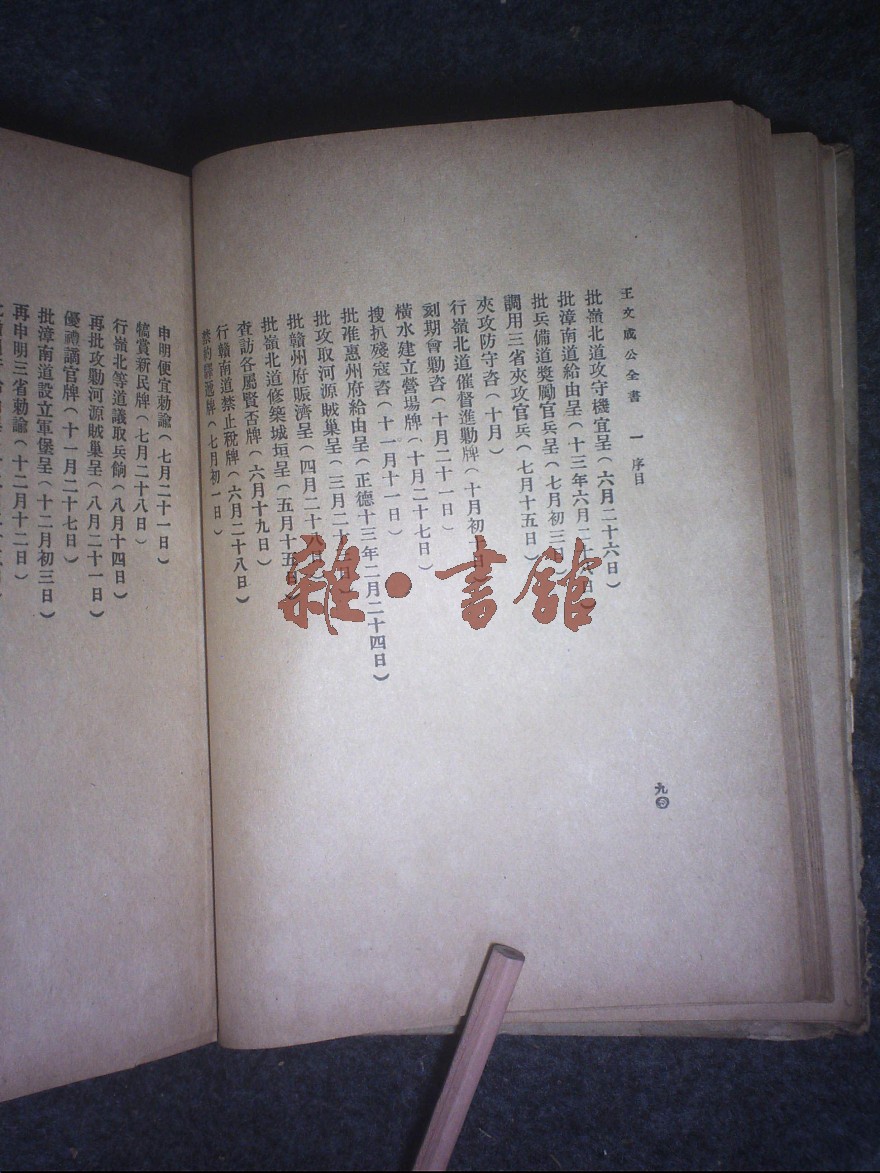 王文成公全書 一 序目
批嶺北道攻守機宜呈(六月二十六日)
批漳南道給由呈(十三年六月二十 日)
批兵備道獎勵官兵呈(七月初三日)
調用三省夾攻官兵(七月十五日)
夾攻防守咨(十月)
行嶺北道催督進勦牌(十月初 日)
刻期會勦咨(十月二十一日)
橫水建立營場牌(十月二十七日)
搜扒殘寇咨(十一月十一日)
批准惠州府給由呈(正德十三年二月二十四日)
批攻取河源賊巢呈(三月二十 日)
批贛州府賑濟呈(四月二十八日)
批嶺北道修築城垣呈(五月十五日)
查訪各屬賢否牌(六月十九日)
行贛南道禁止稅牌(六月二十八日)
禁約驛遞牌(七月初一日)
九
申明便宜勅諭(七月二十一日)
犒賞新民牌(七月二十八日)
行嶺北等道議取兵餉(八月十四日)
再批攻勦河源賊巢呈(八月二十一日)
優禮謫官牌(十一月二十七日)
批漳南道設立軍堡呈(十二月初三日)
再申明三省勅諭(十二月十二日)
雜·書館